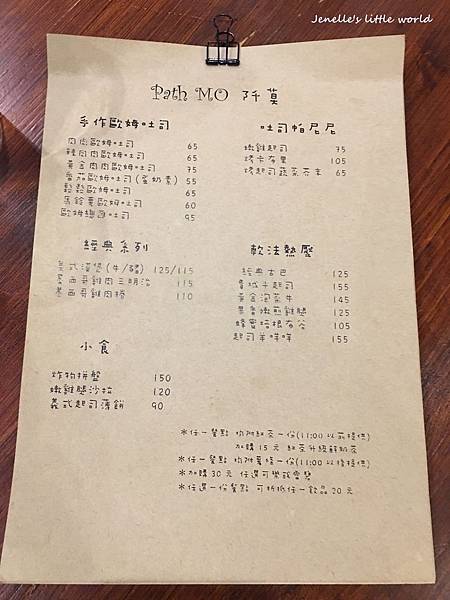 Jenelle's little world
Path MO 阡莫
手作歐姆吐司
肉肉歐姆吐司 65
辣肉肉歐姆吐司 65
黃金肉肉歐姆吐司 75
番茄歐姆吐司(蛋奶素) 55
鬆鬆歐姆吐司 65
馬鈴薯歐姆吐司 60
歐姆總匯吐司 95
吐司帕尼尼
嫩雞起司 75
烤卡布里 105
烤起司蔬菜芥末 65
經典系列
美式漢堡(牛/豬) 125/115
墨西哥雞肉三明治 115
墨西哥雞肉捲 110
軟法熱壓
經典古巴 125
費城牛起司 155
黃金泡菜牛 145
嫩煎雞腿 125
蜂蜜培根布谷 105
起司羊咩咩 155
小食
炸物拼盤 150
嫩雞腿沙拉 120
義式起司薄餅 90
*任一餐點 均附紅茶一份(11:00以前提供)
加購15元 紅茶升級鮮奶茶
*任一餐點 均附薯條一份(11:00以後提供)
*加購30元 任選可樂或雪碧
*任選一份餐點 可折抵任一飲品20元